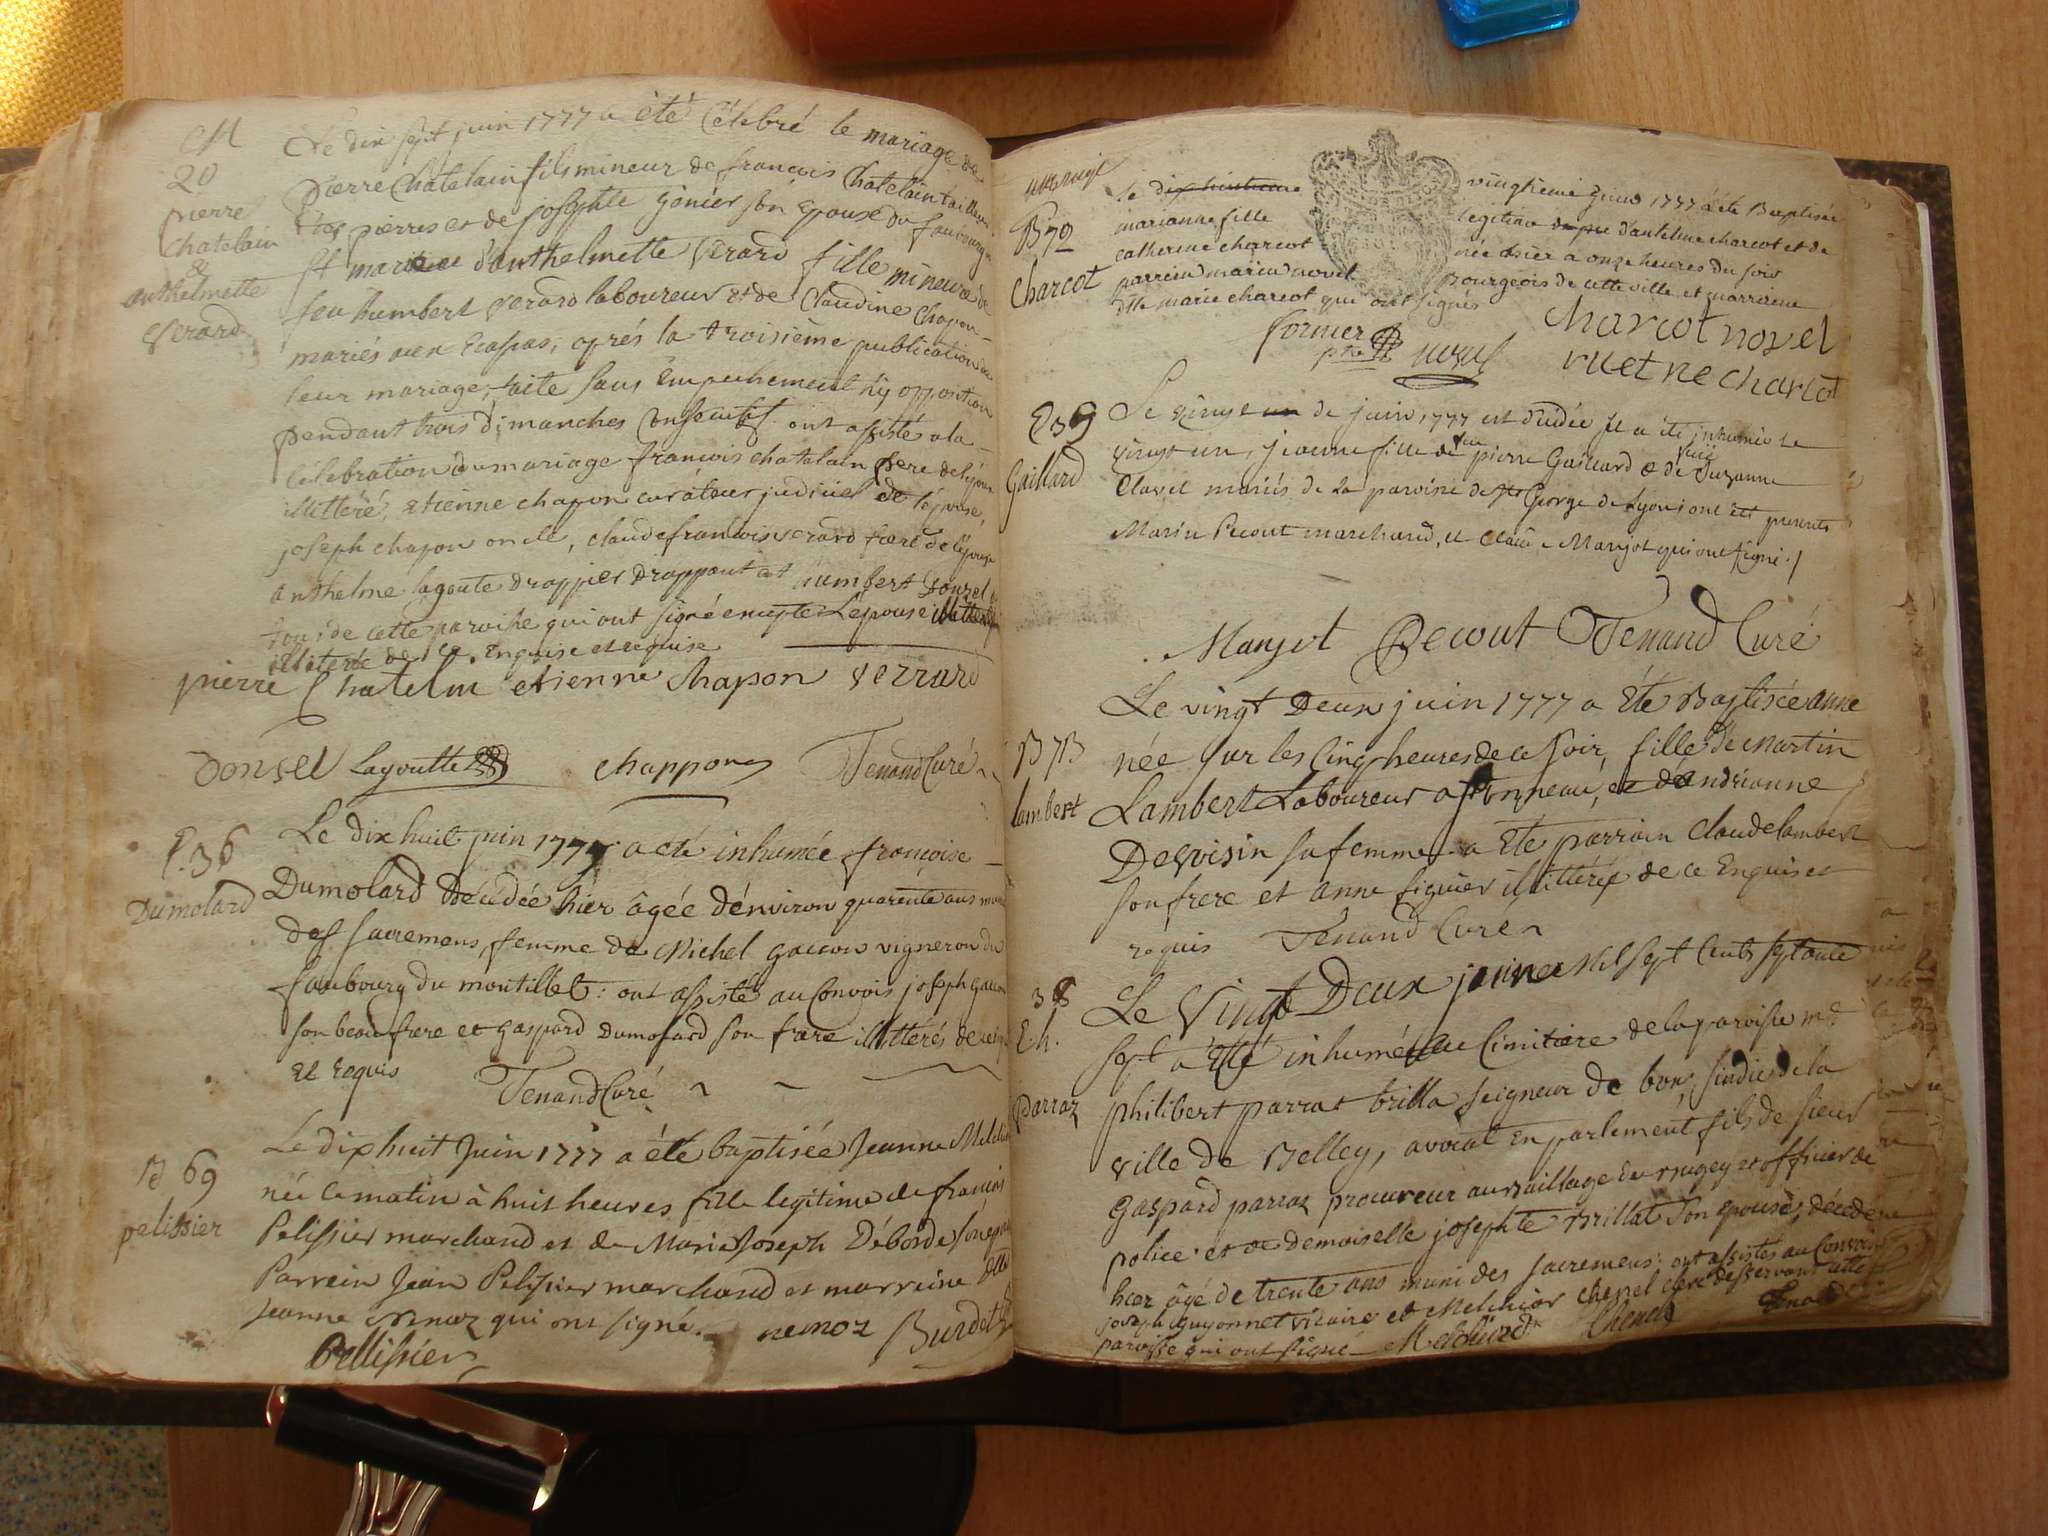 M
20
pierre
Chatelain
&
anthelmette
Verard
Le dix sept juin 1777 a été Célébré le mariage de
pierre Chatelain fils mineur de françois Chatelain tailleur
des pierres et de josephte gonier son Epouse du faubourg
St martin d'anthelmette Verard fille mineure de
feu humbert Verard laboureur et de Claudine Chapon
mariés aux Ecassas, après la troisième publication de
leur mariage, faite sans Empechement ny opposition
pendant trois dimanches Consecutifs ont assisté a la
Célébration du mariage françois chatelain pere de l'époux
illittéré, etienne chapon curateur judiciel de l'épouse,
joseph chapon oncle, claude francois verard frere de l'épouse
anthelme lagoute drappier drappant et humbert Donzel
tous de cette paroisse qui ont signé excepte L'épouse
illiterée de ce Enquise et requise
pierre Chatelin etienne Chapon verrard
Donzel Lagoutte chappon Tenand Curé
E. 36
Dumolard
Le dix huit juin 1777 a été inhumée françoise
Dumolard Décédée hier âgée d'énviron quarente ans munie
des sacremens, femme de Michel gacon vigneron du
faubourg du montillet : ont assisté au Convois joseph gacon
son beau frere et gaspard Dumolard son frere illittérés de ce enquis
Et requis Tenand Curé
B 69
pelissier
Le dix huit Juin 1777 a été baptisée Jeanne
née ce matin à huit heures fille legitime de francois
Pelissier marchand et de Marie Joseph Déborde son épouse
Parrein Jean Pelissier marchand et marreine Dlle
Jeanne qui ont signé. nemoz Burdet
Pellissier
B 70
Charcot
le dix huitieme vingtieme Juin 1777 a été Baptisée
marianne fille legitime d'antelme charcot et de
catherine charcot née hier a onze heures du soir
parrein marin novel Bourgeois de cette ville et marreine
dlle marie charcot qui ont signés
fornier ptre novel Charcot novel
ruet ne charcot
E 39
Gaillard
Le vingt un de juin 1777 est décédée et a été inhumée le
vingt un, jeanne fille de feu pierre Gaillard & de Suzanne
Clavel mariés de la paroisse de St George de Lyon; ont été presents
Marin Pecout marchand, et Claude Manjot qui ont signé ./
Manjot Pecout Tenand Curé
B 73
lambert
Le vingt Deux juin 1777 a Eté Baptisée anne
née sur les Cinq heures de ce soir, fille de Martin
Lambert Laboureur a, et d'andrianne
Desvoisin sa femme. a Eté parrain claude lambert
son frere et anne figuier illittérés de ce Enquis et
requis Tenand Curé
38
E h.
parraz
Le Vingt Deux juin Mil Sept Cents Septante
Sept a Eté inhumé au Cimitiere de la paroisse
philibert parrat brilla seigneur de bon, sindic de la
ville de Belley, avocat En parlement fils de sieur
Gaspard parraz procureur au Bailliage de Bugey et officier de
police et de demoiselle josephte Brillat Son Epouse, décédé
hier âgé de trente ans muni des sacremens : ont assistés au Convoi
joseph guyonnet vicaire et Melchior Chenel clerc desservant cette
paroisse qui ont signé